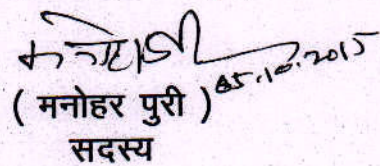 05.10.2015
( मनोहर पुरी )
सदस्य